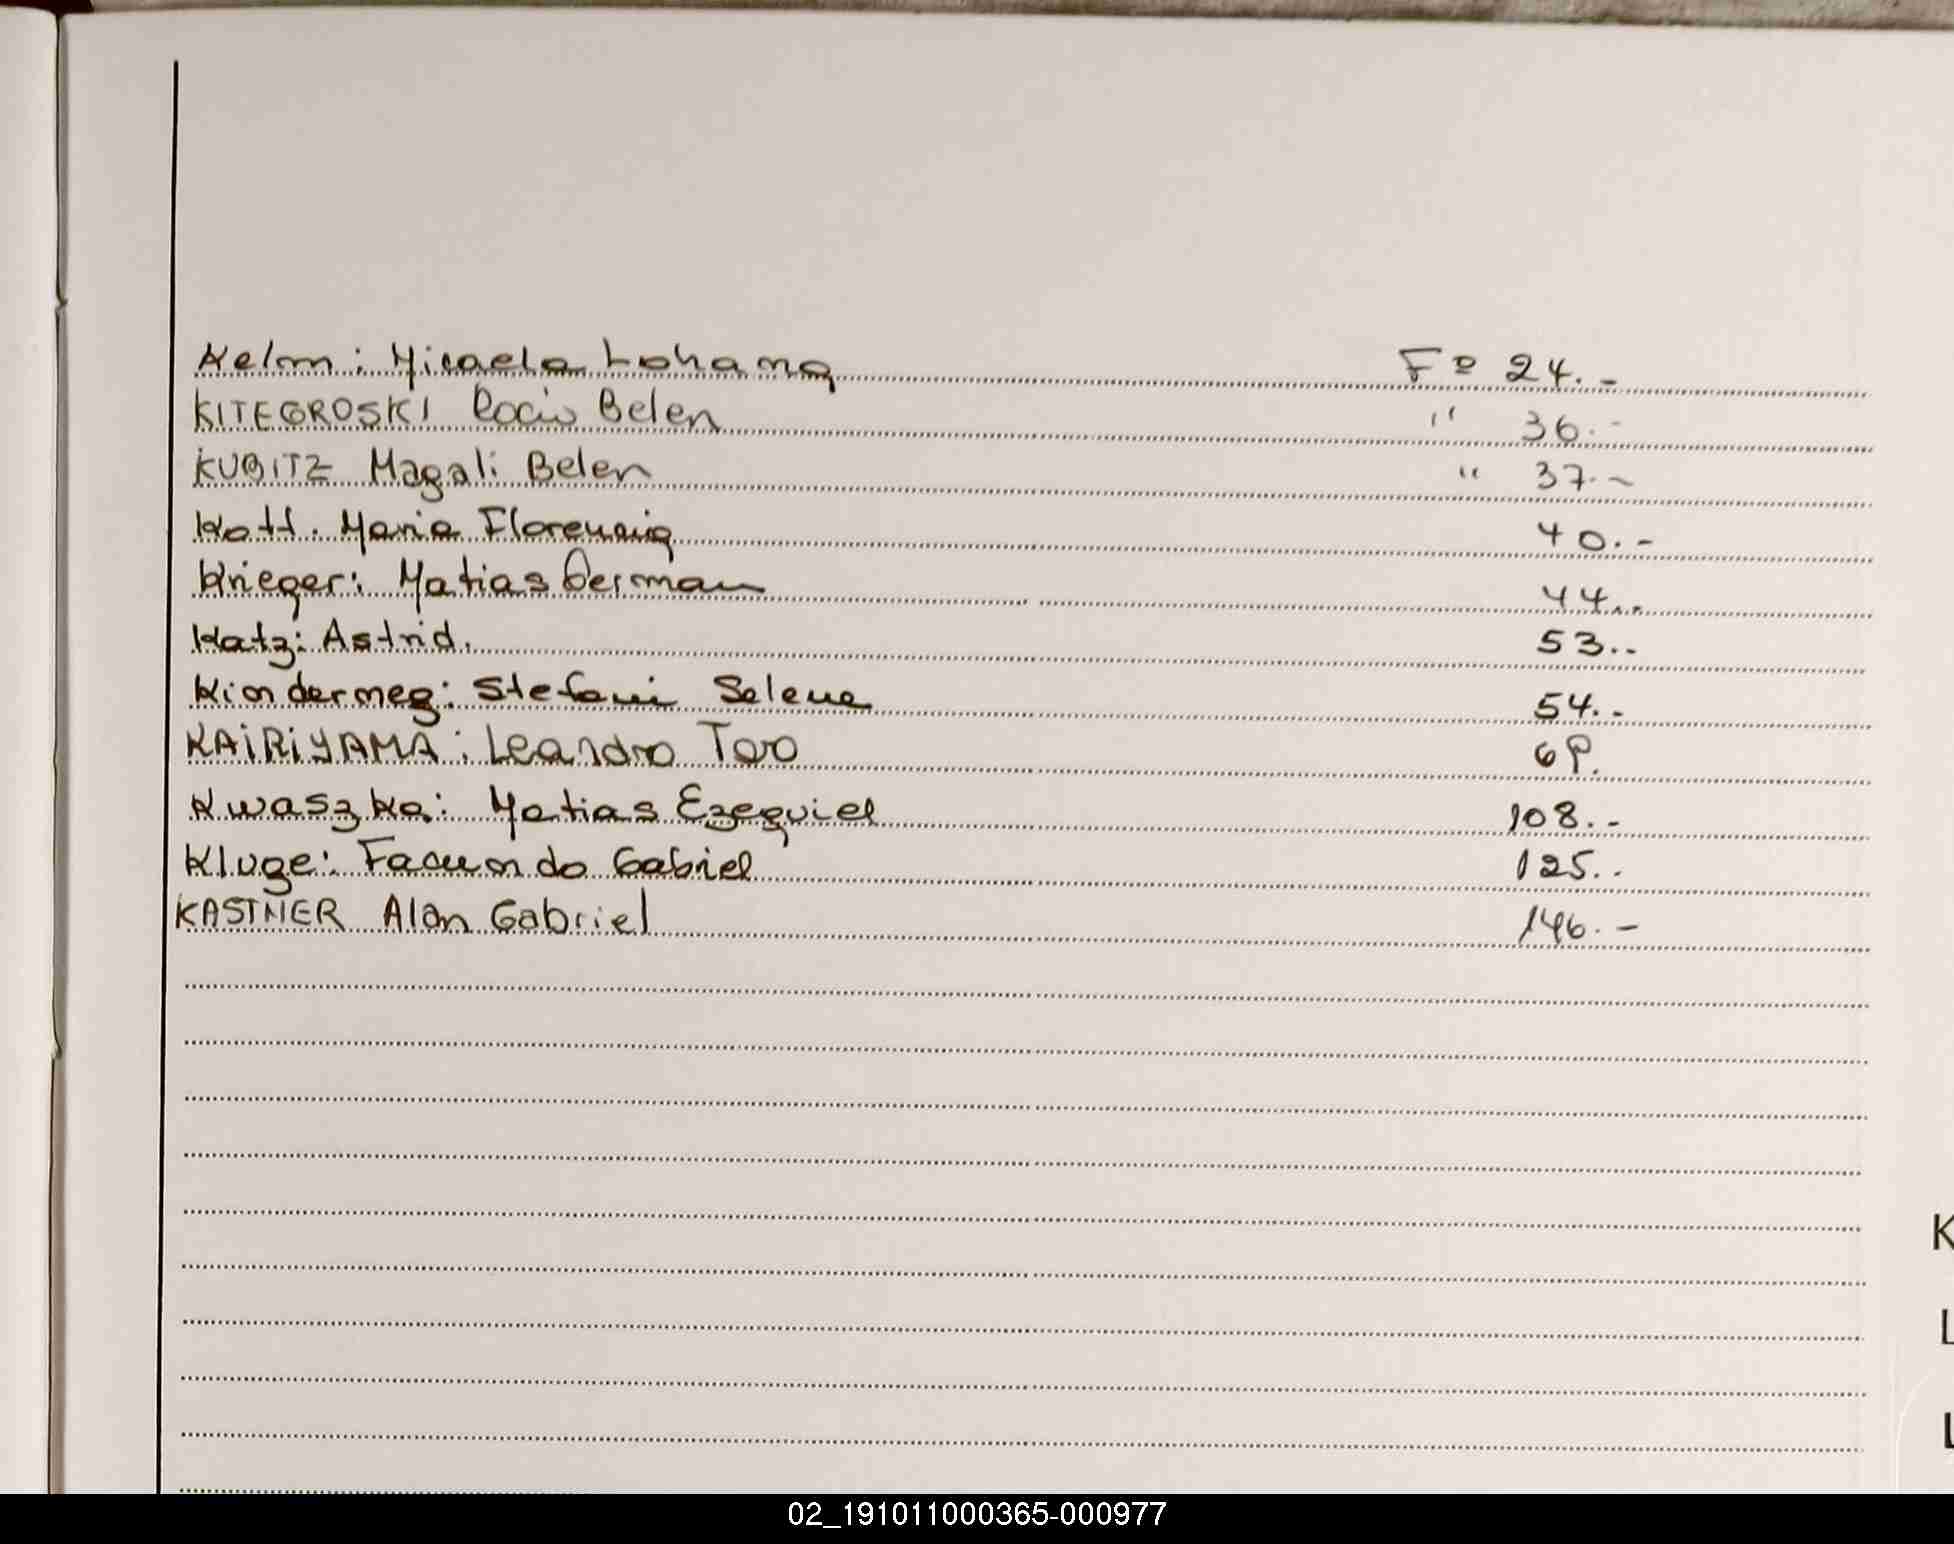 Kelm: Micaela Lohana Fº 24.-
KITEGROSKI Rocio Belen " 36.-
KUBITZ Magali Belen " 37.-
Kott. Maria Florencia 40.-
Krieger: Matias German 44..
Katz: Astrid. 53..
Kindermeg: Stefani Selene 54..
KAIRIYAMA: Leandro Taro
Kwaszka: Matias Ezequiel 108.-
Kluge: Facundo Gabriel 125..
KASTNER Alan Gabriel 146.-
K
L
L
02_191011000365-000977